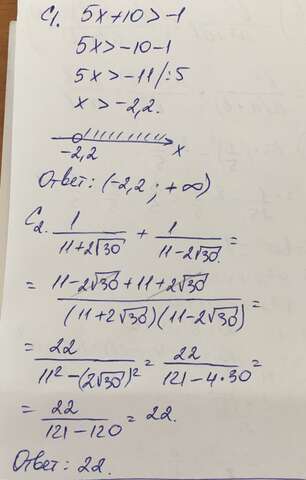 С1. 5x+10>-1
5x>-10-1
5x>-11/:5
x>-2,2.
-2,2 x
Ответ: (-2,2 ; +∞)
С2. 1/(11+2√30) + 1/(11-2√30) =
= (11-2√30+11+2√30)/((11+2√30)(11-2√30)) =
= 22/(11²-(2√30)²) = 22/(121-4·30) =
= 22/(121-120) = 22.
Ответ: 22.